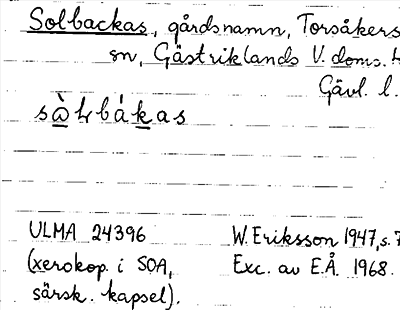 Solbackas, gårdsnamn, Torsåkers
sn, Gästriklands V. doms. h
Gävl. l.
sὼⱡbákas
ULMA 24396
(xerokop. i SOA,
särsk. kapsel).
W. Eriksson 1947, s. 7
Exc. av E.Å. 1968.